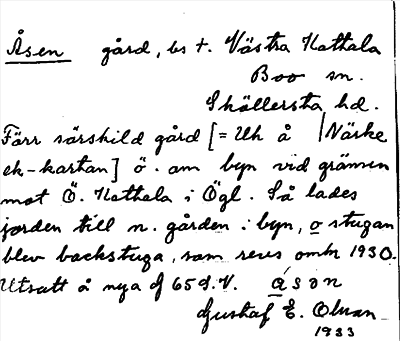 Åsen gård, bs t. Västra Hattala
Boo sn.
Skällersta hd.
Förr särskild gård [= Uh å | Närke
ek-kartan] ö. om byn vid gränsen
mot Ö. Hattala i Ögl. Så lades
jorden till n. gården i byn, o stugan
blev backstuga, som revs omkr 1930.
Utsatt å nya 65 d.V. åsɔn
Gustaf E. Olsson
1933